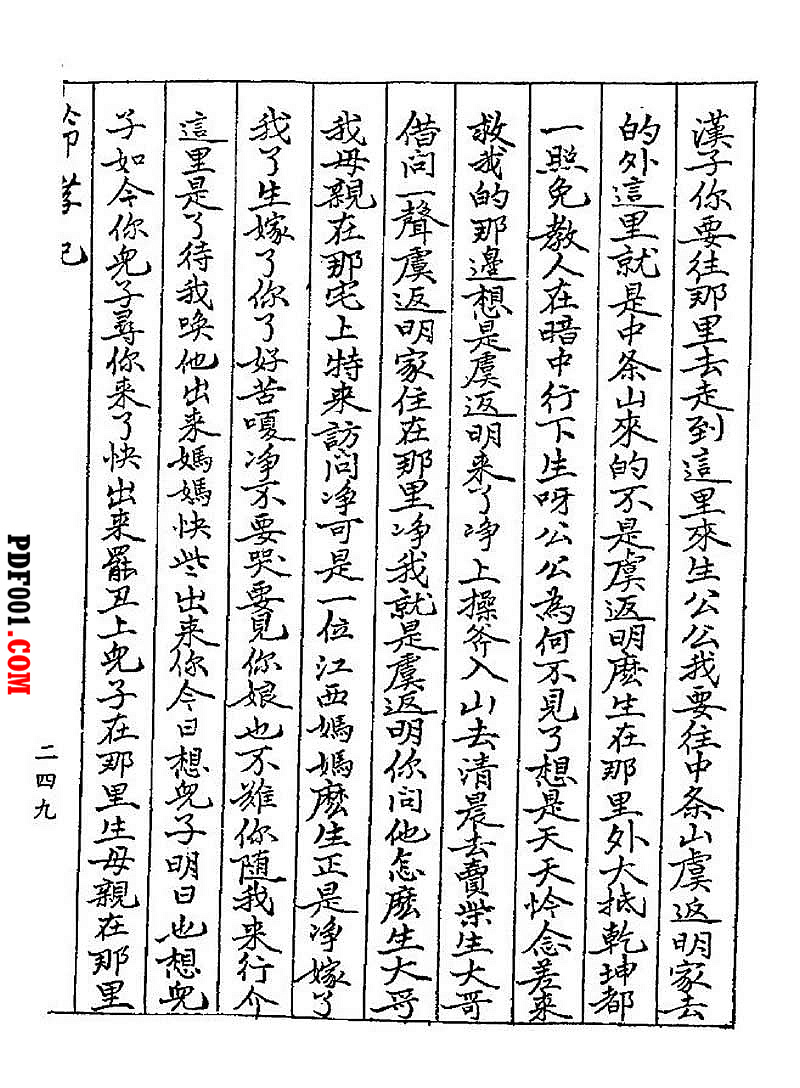 漢子你要往那里去走到這里來生公公我要往中条山虞返明家去
的外這里就是中条山來的不是虞返明麽生在那里外大抵乾坤都
一照免教人在暗中行下生呀公公為何不見了想是天天怜念差来
救我的那邊想是虞返明来了净上操斧入山去清晨去賣柴生大哥
借问一聲虞返明家住在那里净我就是虞返明你问他怎麽生大哥
我母親在那宅上特来訪问净可是一位江西媽媽麽生正是净嫁了
我了生嫁了你了好苦嗄净不要哭要見你娘也不难你随我来行介
這里是了待我喚他出来媽媽快些出来你今日想兒子明日也想兒
子如今你兒子尋你来了快出来罷丑上兒子在那里生母親在那里
二四九
PDF001.COM